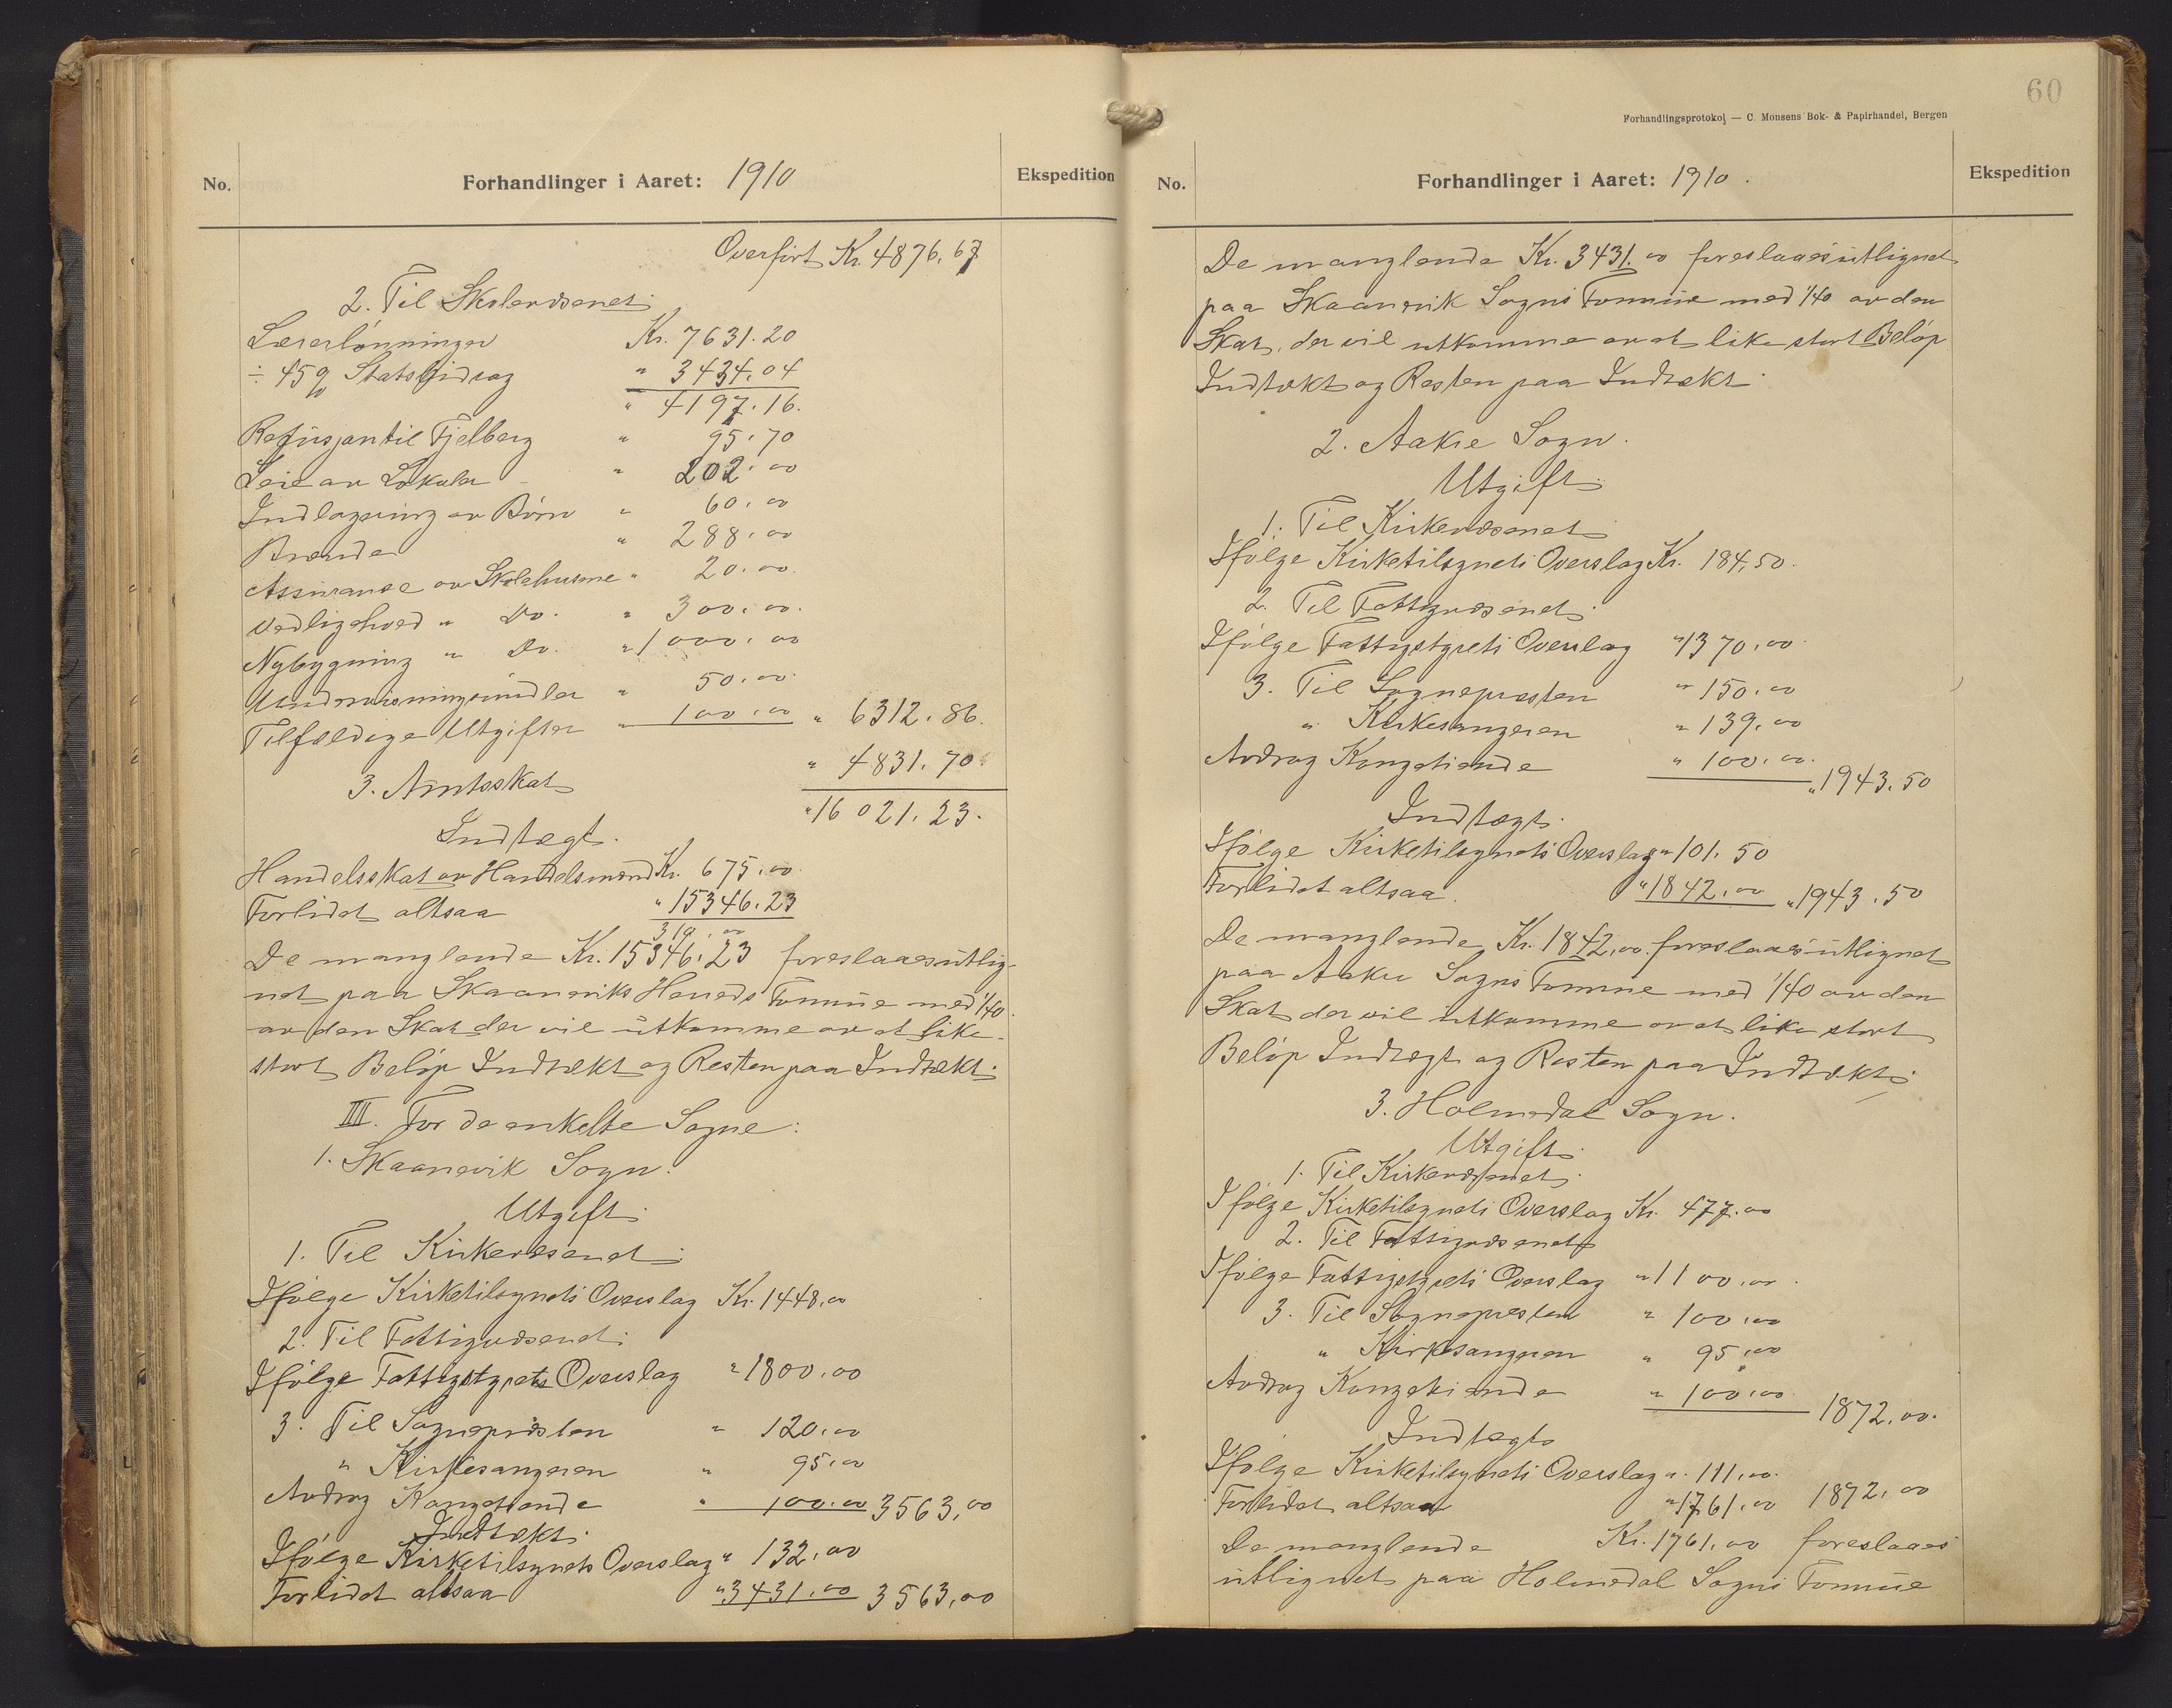 No.
Forhandlinger i Aaret: 1910
Ekspedition
Overført Kr. 4876,67
2. Til Skolevæsenet
Lærerlønninger Kr. 7631.20
÷ 45% Statsbidrag " 3434.04
" 4197.16.
Refusjon til Fjelberg " 95.70
Leie av Lokaler " 202.00
Indlogering av Børn " 60.00
Brænde " 288.00
Assuranse av Skolehusene " 20.00.
Vedligehold " Do. " 300.00.
Nybygning " Do. " 1000.00
Undervisningsmidler " 50.00.
Tilfældige Utgifter " 100.00 " 6312.86.
3. Amtsskat " 4831.70.
" 16021.23.
Indtægt.
Handelsskat av Handelsmænd Kr. 675.00.
Forlidet altsaa " 15346.23
De manglende Kr. 15346.23 foreslaaes utlig-
net paa Skaaneviks Herreds Formue med 1/40
av den Skat der vil utkomme av et like
stort Beløp Indtækt og Resten paa Indtækt.
III. For de enkelte Sogne:
1. Skaanevik Sogn.
Utgift.
1. Til Kirkevæsenet
Ifølge Kirketilsynets Overslag Kr. 1448,00
2. Til Fattigvæsenet
Ifølge Fattigstyrets Overslag " 1800,00
3. Til Sognepræsten " 120,00
" Kirkesangeren " 95,00
Avdrag Kongetiende " 100.00 3563,00
Indtækt.
Ifølge Kirketilsynets Overslag " 132,00
Forlidet altsaa " 3431,00 3563,00
60
Forhandlingsprotokol — C. Monsens Bok- & Papirhandel, Bergen
No.
Forhandlinger i Aaret: 1910.
Ekspedition
De manglende Kr. 3431.00 foreslaaes utlignet
paa Skaanevik Sogns Formue med 1/40 av den
Skat, der vil utkomme av et like stort Beløp
Indtækt og Resten paa Indtækt.
2. Aakre Sogn.
Utgift
1. Til Kirkevæsenet
Ifølge Kirketilsynets Overslag Kr. 184,50.
2. Til Fattigvæsenet
Ifølge Fattigstyrets Overslag " 1370,00
3. Til Sognepræsten " 150.00
" Kirkesangeren " 139,00
Avdrag Kongetiende " 100.00. " 1943.50
Indtægt.
Ifølge Kirketilsynets Overslag " 101.50
Forlidet altsaa " 1842,00 " 1943.50
De manglende Kr. 1842,00. foreslaaes utlignet
paa Aakre Sogns Formue med 1/40 av den
Skat der vil utkomme av et like stort
Beløp Indtægt og Resten paa Indtækt.
3. Holmedal Sogn.
Utgift
1. Til Kirkevæsenet
Ifølge Kirketilsynets Overslag Kr. 477.00
2. Til Fattigvæsenet
Ifølge Fattigstyrets Overslag " 1100,00.
3. Til Sognepresten " 100,00
" Kirkesangeren " 95,00
Avdrag Kongetiende " 100,00. 1872,00.
Indtægt
Ifølge Kirketilsynets Overslag " 111,00.
Forlidet altsaa " 1761,00 1872,00
De manglende Kr. 1761,00 foreslaaes
utlignet paa Holmedal Sogns Formue